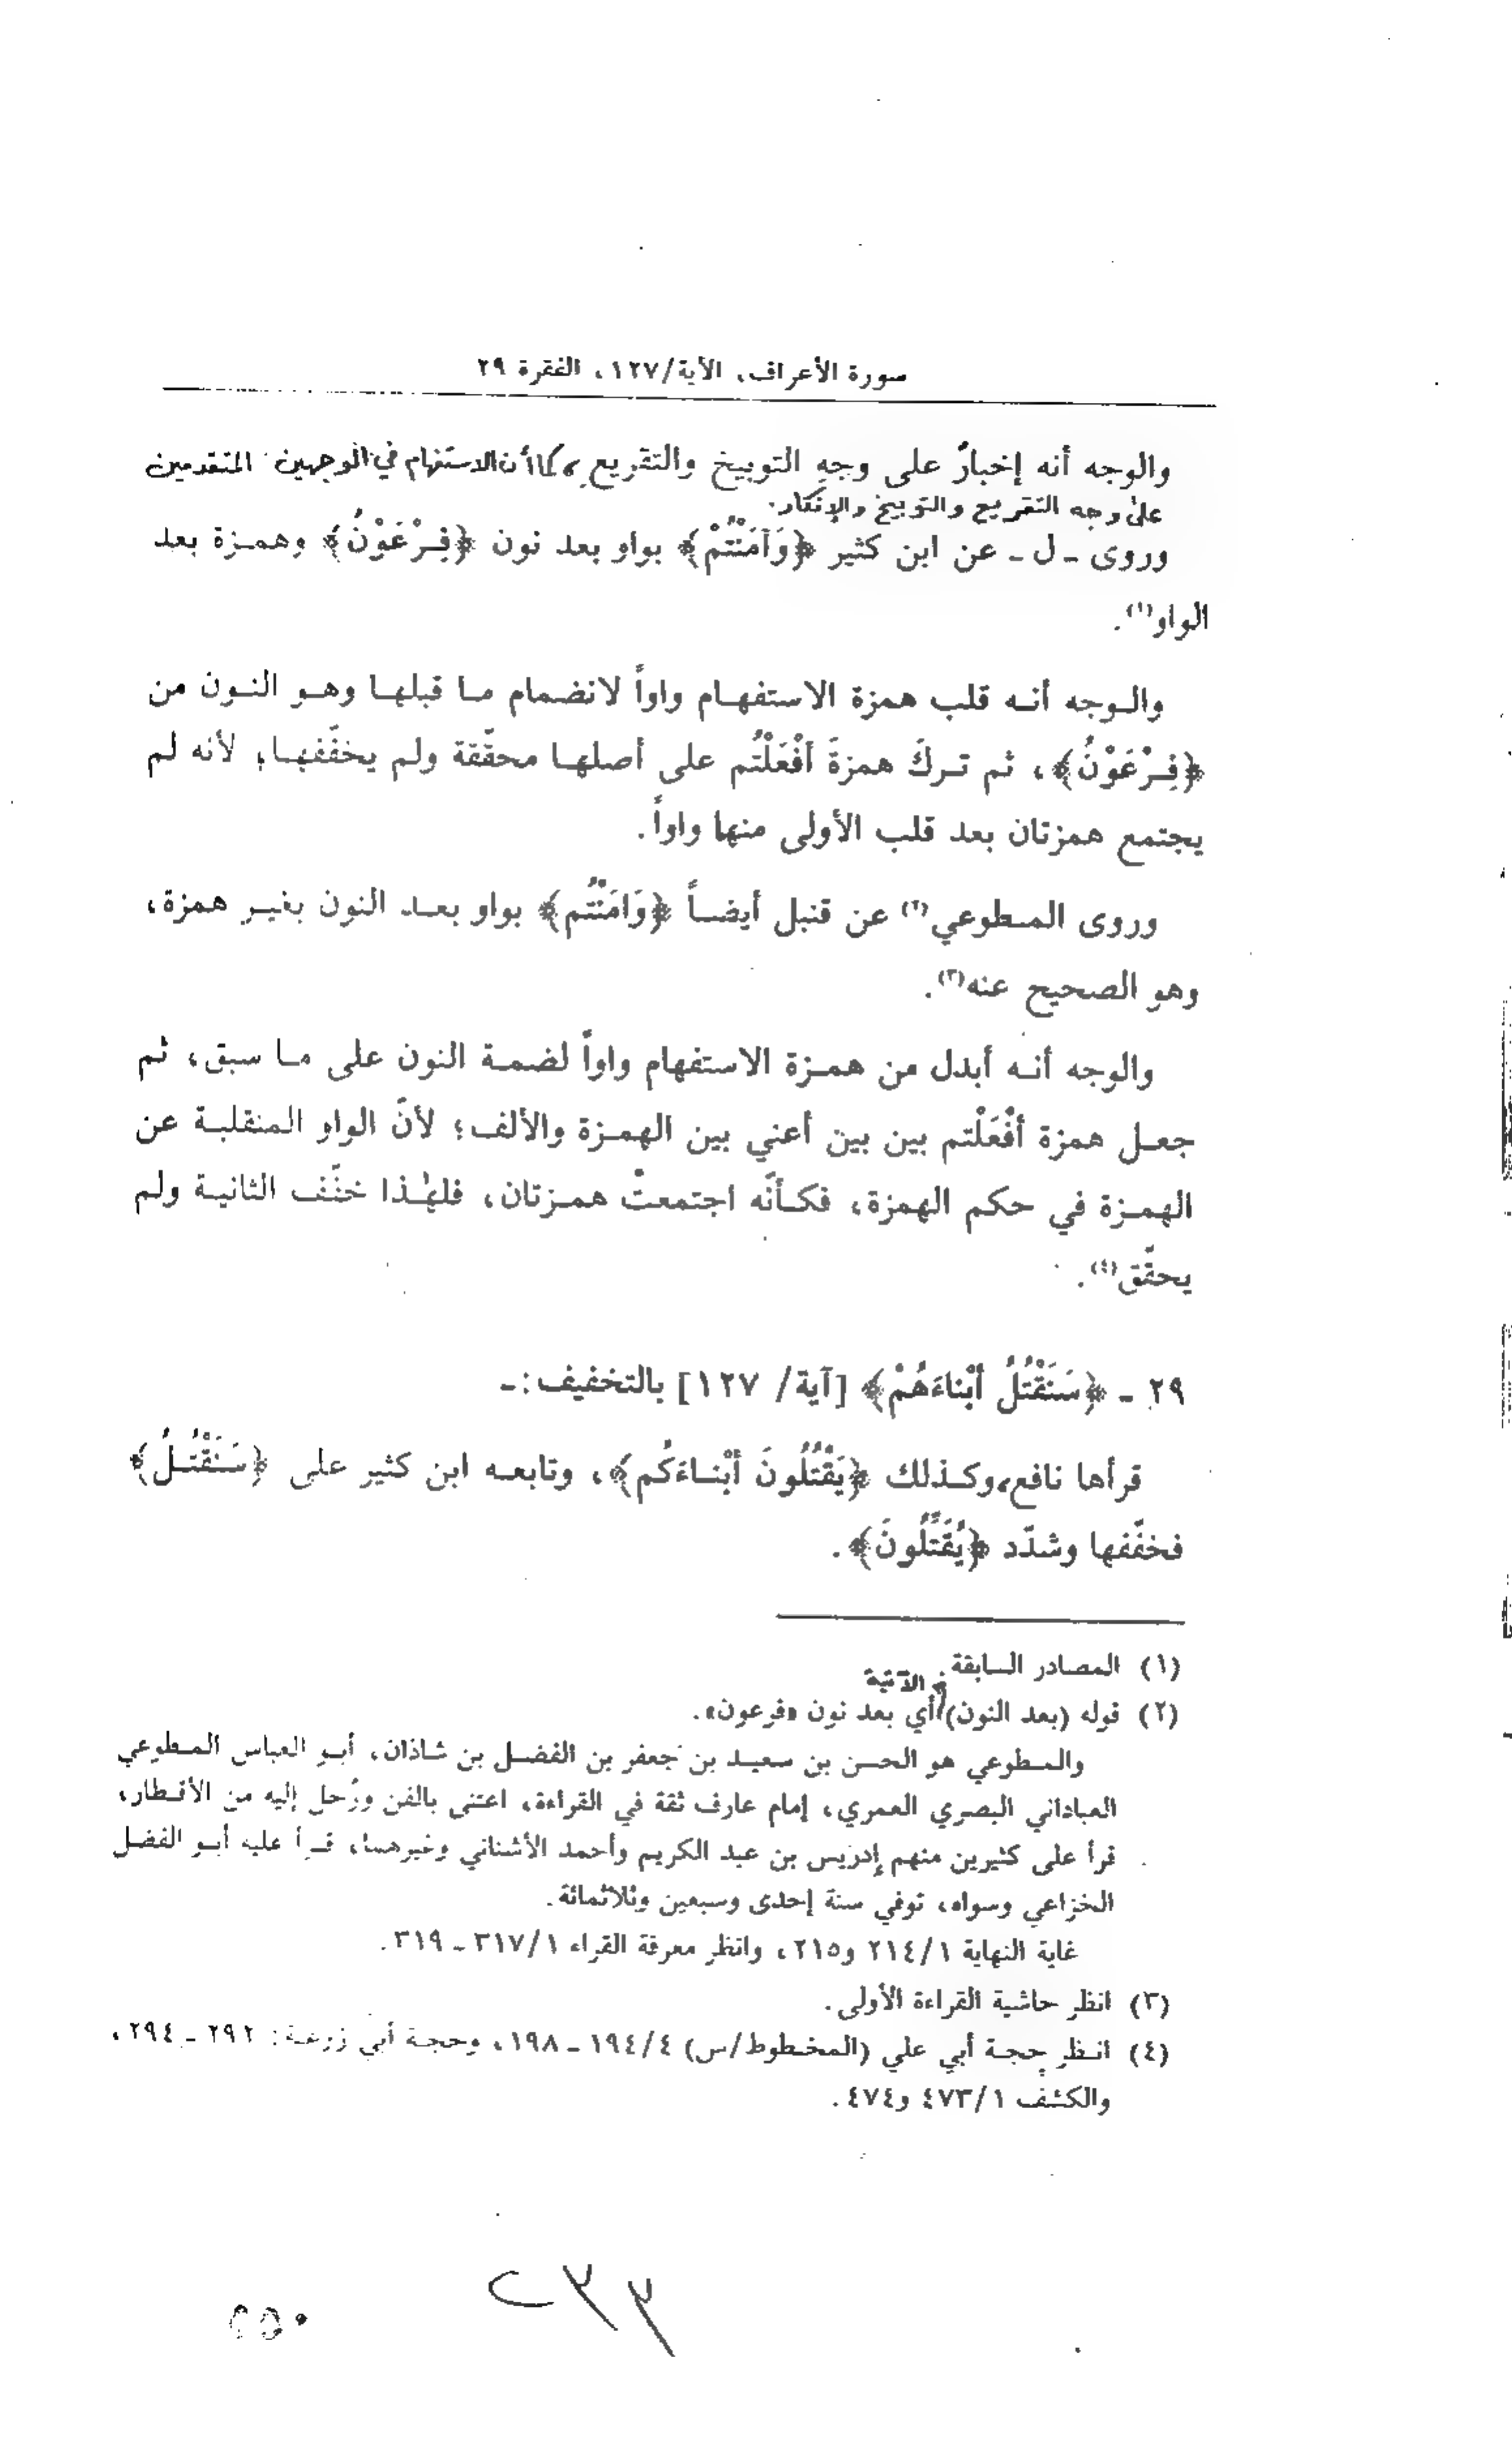 سورة الأعراف، الآية/١٢٧، الفقرة ٢٩
والوجه أنه إخبارٌ على وجهِ التوبيخ والتقريع، كما أن الاستفهام في الوجهين المتقدمين
على وجه التقريع والتوبيخ والإنكار.
وروى ـ ل ـ عن ابن كثير ﴿وَآمَنْتُمْ﴾ بواو بعد نون ﴿فِرْعَوْنُ﴾ وهمزة بعد
الواو(١).
والوجه أنه قلب همزة الاستفهام واواً لانضمام ما قبلها وهو النون من
﴿فِرْعَوْنُ﴾، ثم تركَ همزةَ أفْعَلْتُم على أصلها محقّقة ولم يخفّفها؛ لأنه لم
يجتمع همزتان بعد قلب الأولى منها واواً.
وروى المطوعي(٢) عن قنبل أيضاً ﴿وَامَنْتُم﴾ بواو بعد النون بغير همزة،
وهو الصحيح عنه(٣).
والوجه أنه أبدل من همزة الاستفهام واواً لضمة النون على ما سبق، ثم
جعل همزة أفْعَلْتم بين بين أعني بين الهمزة والألف؛ لأنّ الواو المنقلبة عن
الهمزة في حكم الهمزة، فكأنّه اجتمعتْ همزتان، فلهٰذا خفّف الثانية ولم
يحقّق(٤).
٢٩ ـ ﴿سَنَقْتُلُ أبْناءَهُمْ﴾ [آية/ ١٢٧] بالتخفيف:ـ
قرأها نافع، وكذلك ﴿يَقْتُلُونَ أبْناءَكُم﴾، وتابعه ابن كثير على ﴿سَنَقْتُلُ﴾
فخفّفها وشدّد ﴿يُقَتِّلُونَ﴾.
(١) المصادر السابقة
في الآتية
(٢) قوله (بعد النون) أي بعد نون «فرعون».
والمطوعي هو الحسن بن سعيد بن جعفر بن الفضل بن شاذان، أبو العباس المطوعي
العباداني البصري العمري، إمام عارف ثقة في القراءة، اعتنى بالفن ورُحل إليه من الأقطار،
قرأ على كثيرين منهم إدريس بن عبد الكريم وأحمد الأشناني وغيرهما، قرأ عليه أبو الفضل
الخزاعي وسواه، توفي سنة إحدى وسبعين وثلاثمائة.
غاية النهاية ٢١٤/١ و٢١٥، وانظر معرفة القراء ٣١٧/١ ـ ٣١٩.
(٣) انظر حاشية القراءة الأولى.
(٤) انظر حجة أبي علي (المخطوط/س) ١٩٤/٤ ـ ١٩٨، وحجة أبي زرعة: ٢٩٢ ـ ٢٩٤،
والكشف ٤٧٣/١ و٤٧٤.